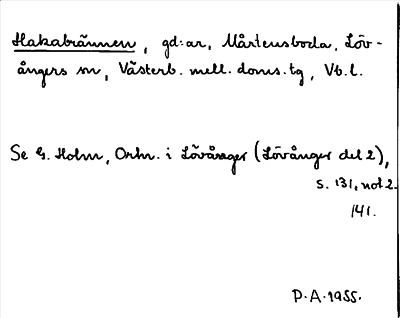 Hakabrännen, gd:ar, Mårtensboda, Löv-
ångers sn, Västerb. mell. doms.tg, Vb.l.
Se G. Holm, Ortn. i Lövånger (Lövånger del 2),
s. 131, not 2.
141.
P.A. 1955.